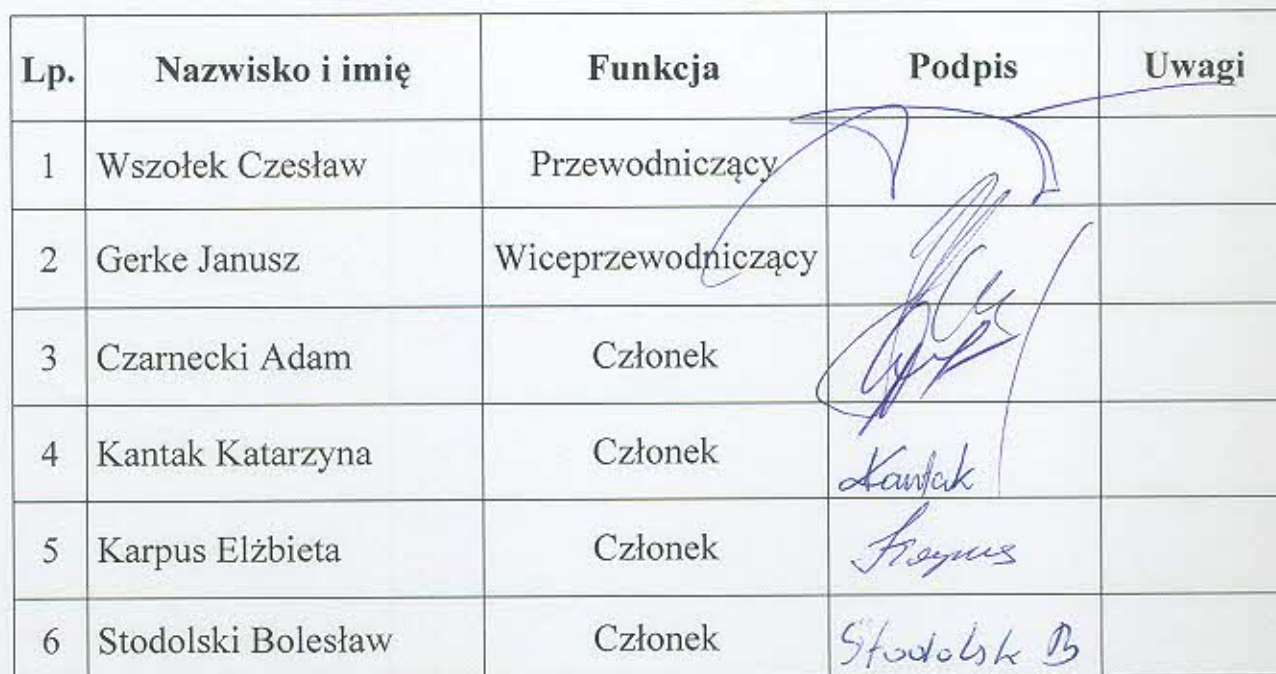 Lp. Nazwisko i imię Funkcja Podpis Uwagi
1 Wszołek Czesław Przewodniczący
2 Gerke Janusz Wiceprzewodniczący
3 Czarnecki Adam Członek
4 Kantak Katarzyna Członek Kantak
5 Karpus Elżbieta Członek Karpus
6 Stodolski Bolesław Członek Stodolsk B